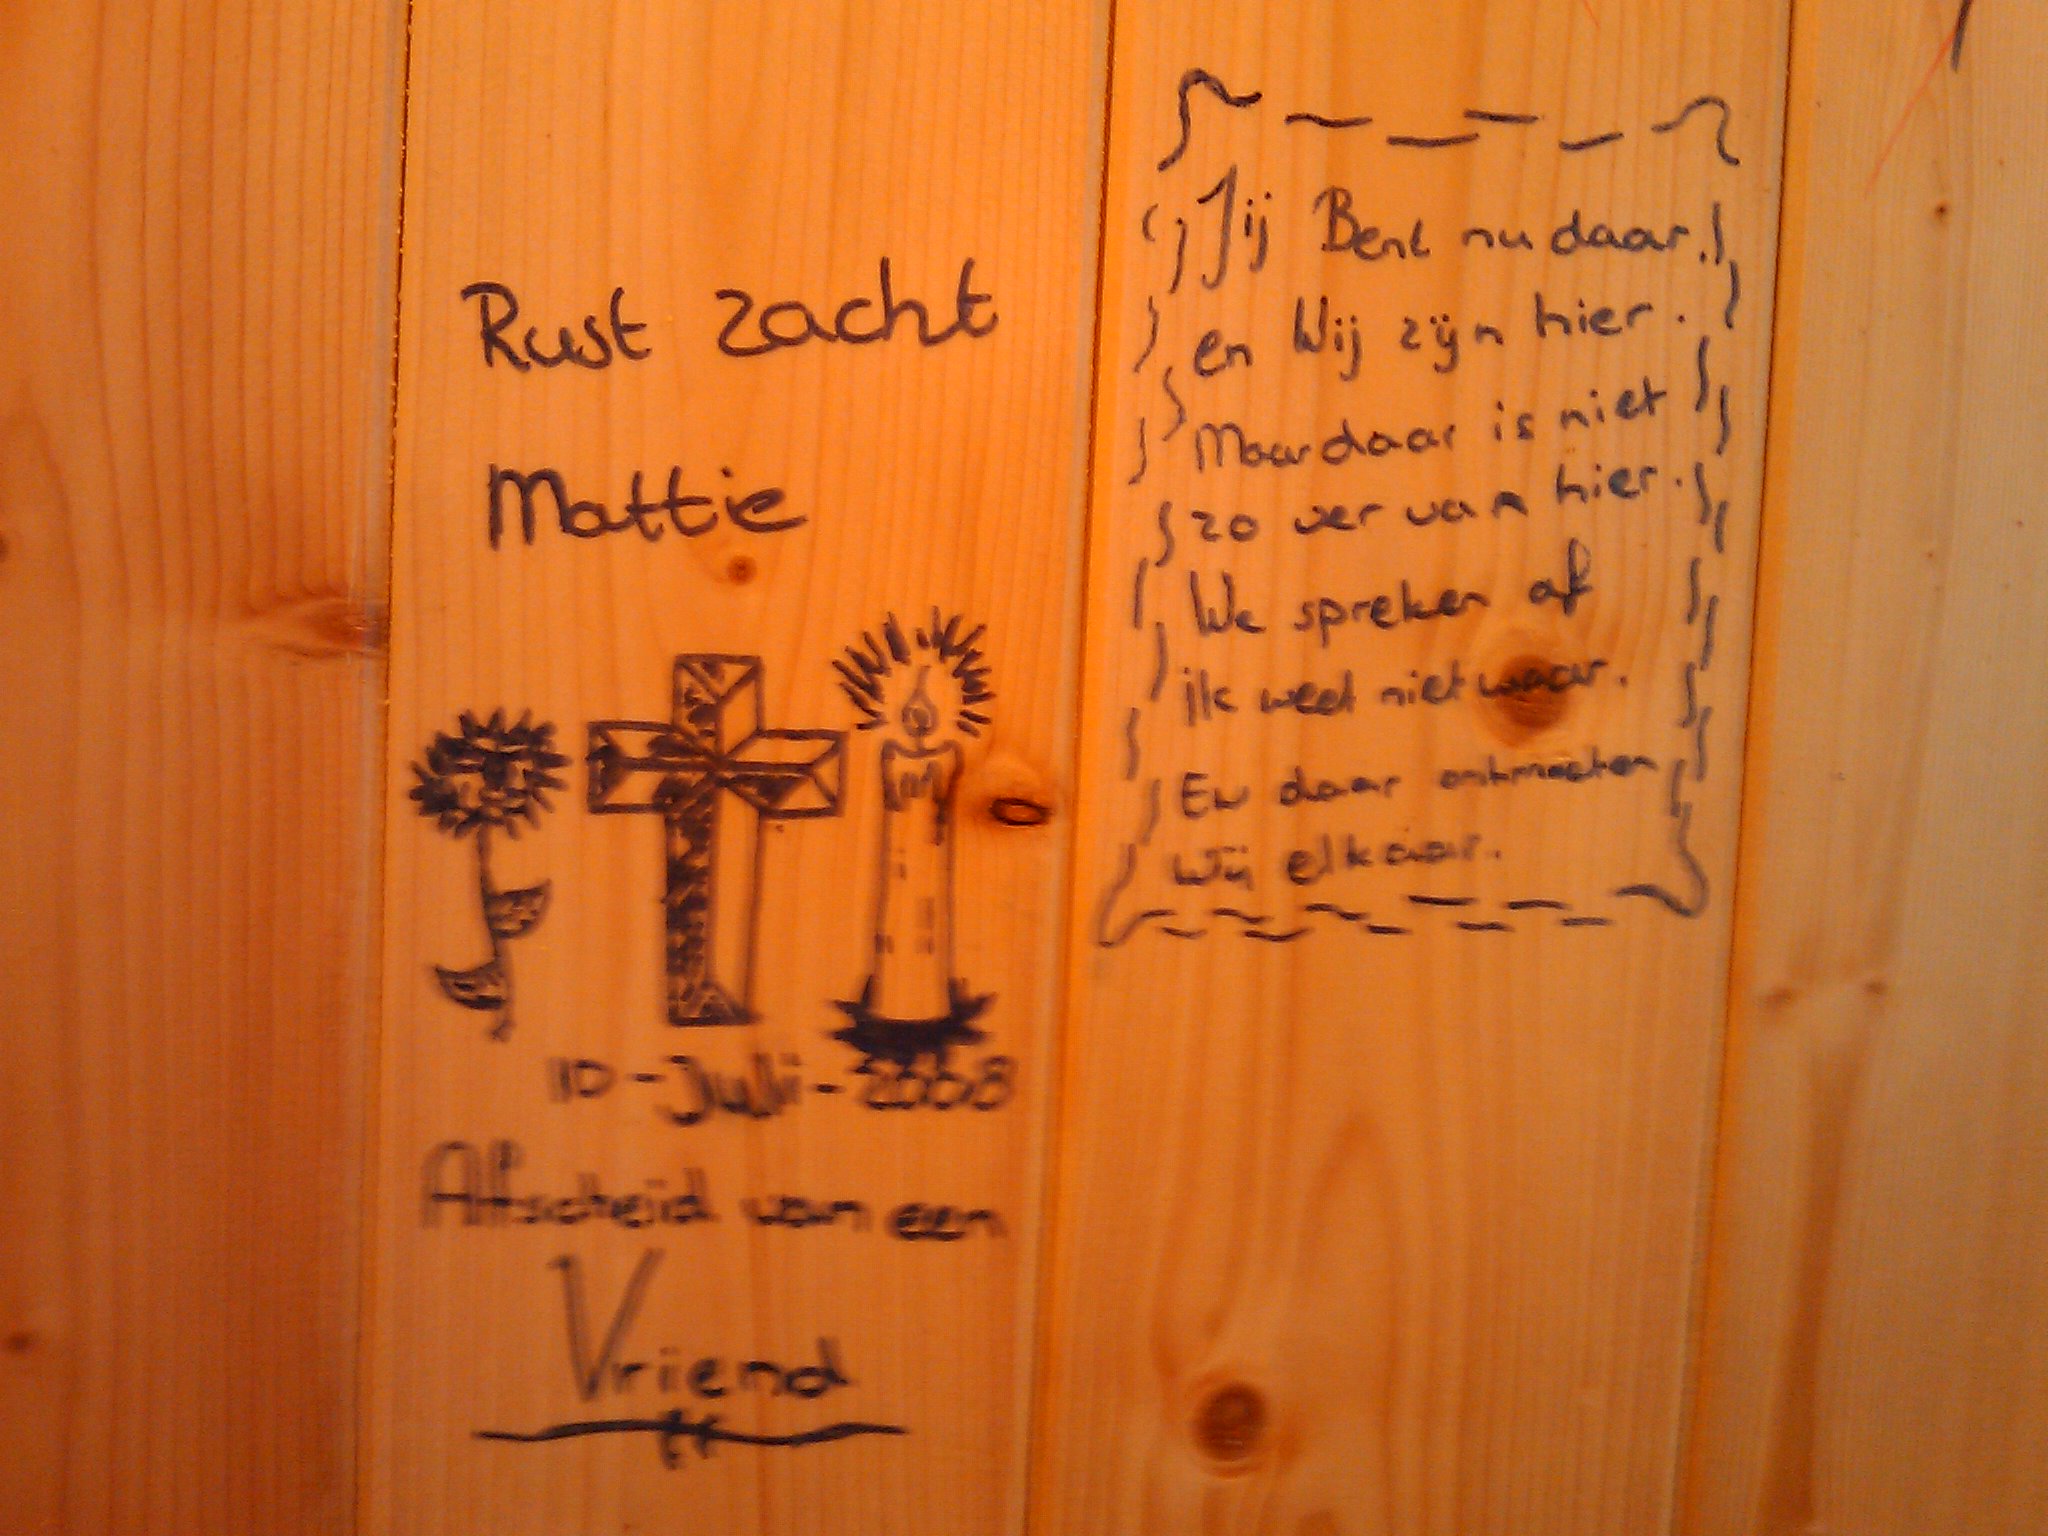 Rust zacht
Mattie
10-Juli-2008
Afscheid van een
Vriend
Jij Bent nu daar.
en Wij zijn hier.
Maar daar is niet
zo ver van hier.
We spreken af
ik weet niet waar.
En daar ontmoeten
Wij elkaar.